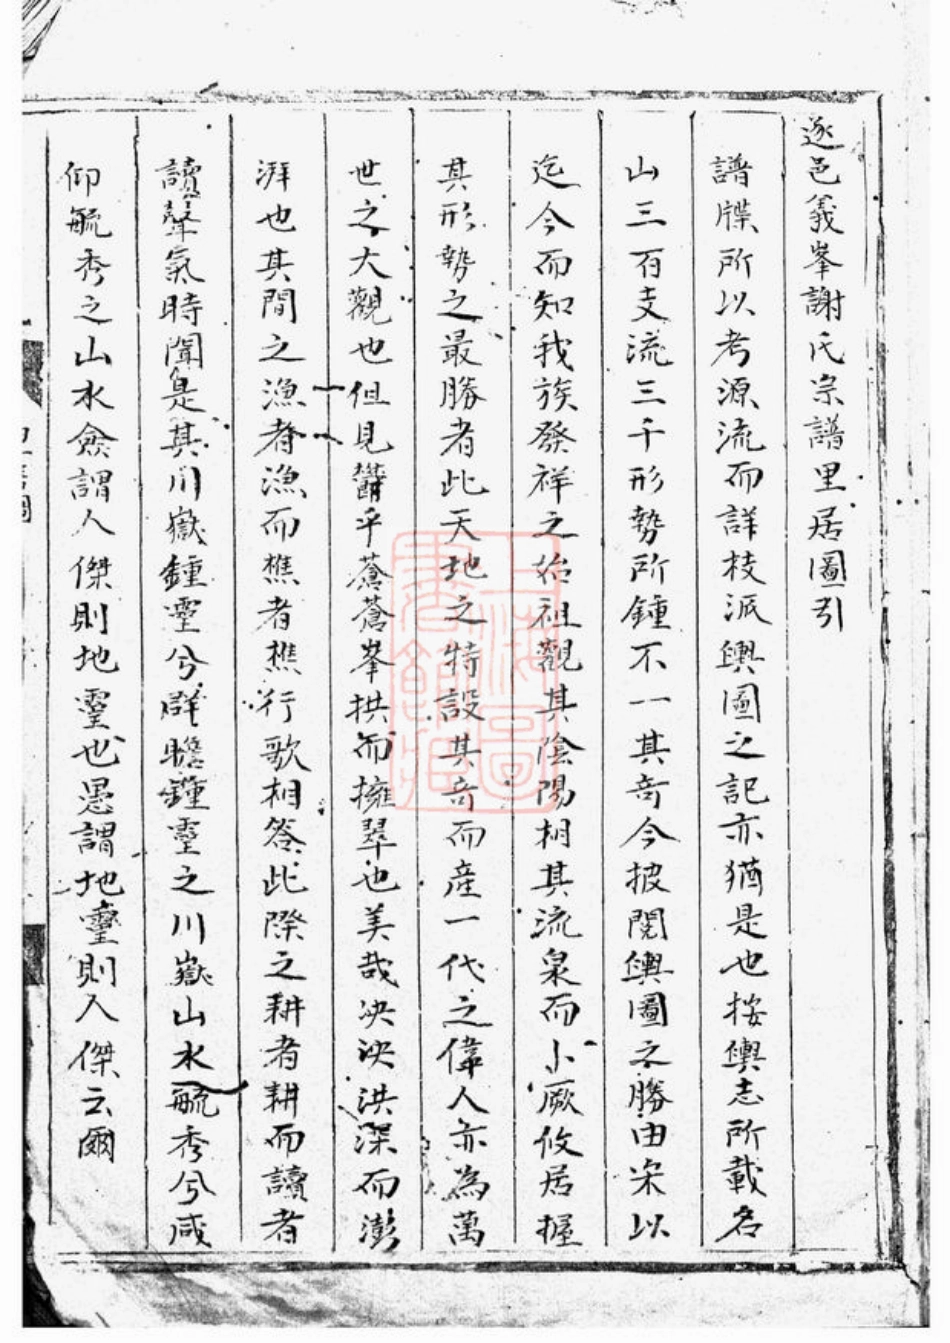 遂邑義峯謝氏宗譜里居圖引
譜牒所以考源流而詳枝派輿圖之記亦猶是也按輿志所載名
山三百支流三千形勢所鍾不一其竒今披閱輿圖之勝由宋以
迄今而知我族發祥之始祖觀其陰陽相其流泉而卜厥攸居握
其形勢之最勝者此天地之特設其竒而産一代之偉人亦為萬
世之大觀也但見欝乎蒼蒼峯拱而擁翠也美哉泱泱洪深而澎
湃也其間之漁者漁而樵者樵行歌相答此際之耕者耕而讀者
讀聲氣時聞是其川嶽鍾靈兮群瞻鍾靈之川嶽山水毓秀兮咸
仰毓秀之山水僉謂人傑則地靈也愚謂地靈則人傑云爾
上海圖書館藏